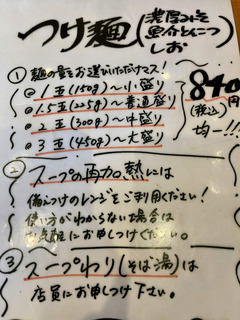 つけ麺(濃厚みそ
魚介とんこつ
しお
① 麺の量をお選びいただけマス!
◎ 1玉(150g)〜小盛り
◎ 1.5玉(225g)〜普通盛り
◎ 2玉(300g)〜中盛り
◎ 3玉(450g)〜大盛り
840円
(税込)
均一!!
② スープの再加熱には
備えつけのレンジをご利用ください!
使い方がわからない場合は
お気軽にお申しつけください。
③ スープわり(そば湯)は
店員にお申しつけ下さい。